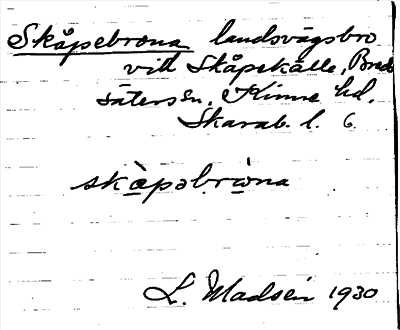 Skåpebrona landsvägsbro
vid Skåpekälla, Bred-
säters sn, Kinne hd,
Skarab. l. 6
skåpəbrona
L. Madsén 1930